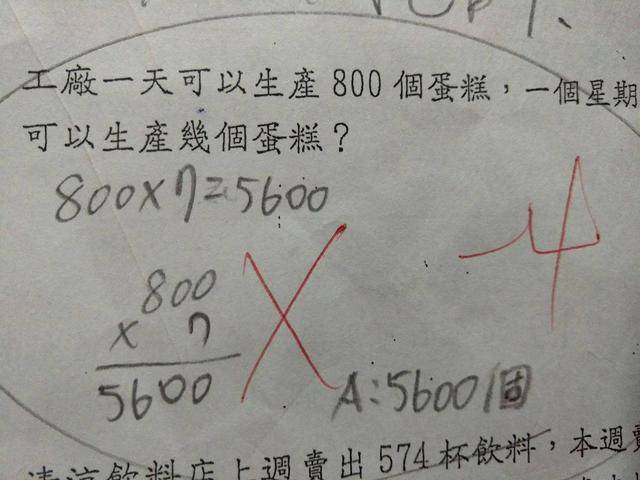 工廠一天可以生產 800 個蛋糕，一個星期
可以生產幾個蛋糕？
800×7=5600
800
× 7
5600
-4
A:5600個
清涼飲料店上週賣出 574 杯飲料，本週賣